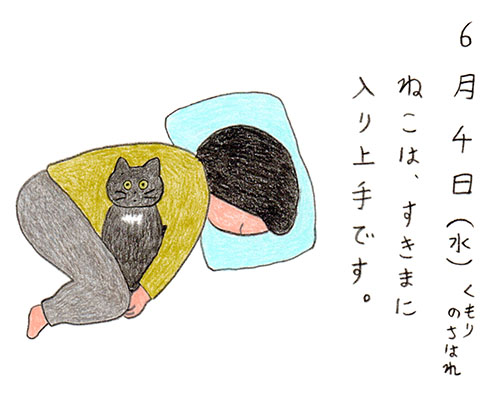 6月4日(水)くもり
のさはれ
ねこは、すきまに
入り上手です。